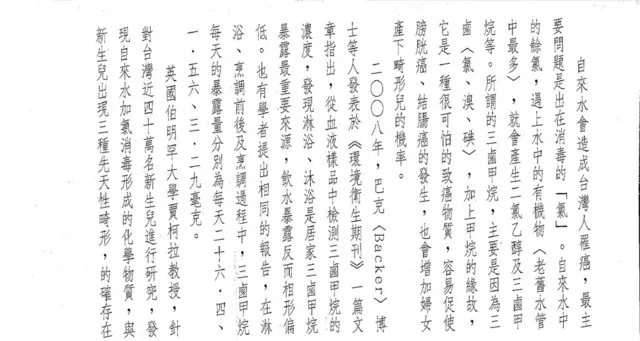 自來水會造成台灣人罹癌，最主
要問題是出在消毒的「氯」。自來水中
的餘氯，遇上水中的有機物〈老舊水管
中最多〉，就會產生二氯乙醇及三鹵甲
烷等。所謂的三鹵甲烷，主要是因為三
鹵〈氯、溴、碘〉，加上甲烷的緣故，
它是一種很可怕的致癌物質，容易促使
膀胱癌、結腸癌的發生，也會增加婦女
產下畸形兒的機率。
二〇〇八年，巴克〈Backer〉博
士等人發表於《環境衛生期刊》一篇文
章指出，從血液樣品中檢測三鹵甲烷的
濃度，發現淋浴、沐浴是居家三鹵甲烷
暴露最重要來源，飲水暴露反而相形偏
低。也有學者提出相同的報告，在淋
浴、烹調前後及烹調過程中，三鹵甲烷
每天的暴露量分別為每天二十六．四、
一．五六、三．二九毫克。
英國伯明罕大學賈柯拉教授，針
對台灣近四十萬名新生兒進行研究，發
現自來水加氯消毒形成的化學物質，與
新生兒出現三種先天性畸形，的確存在